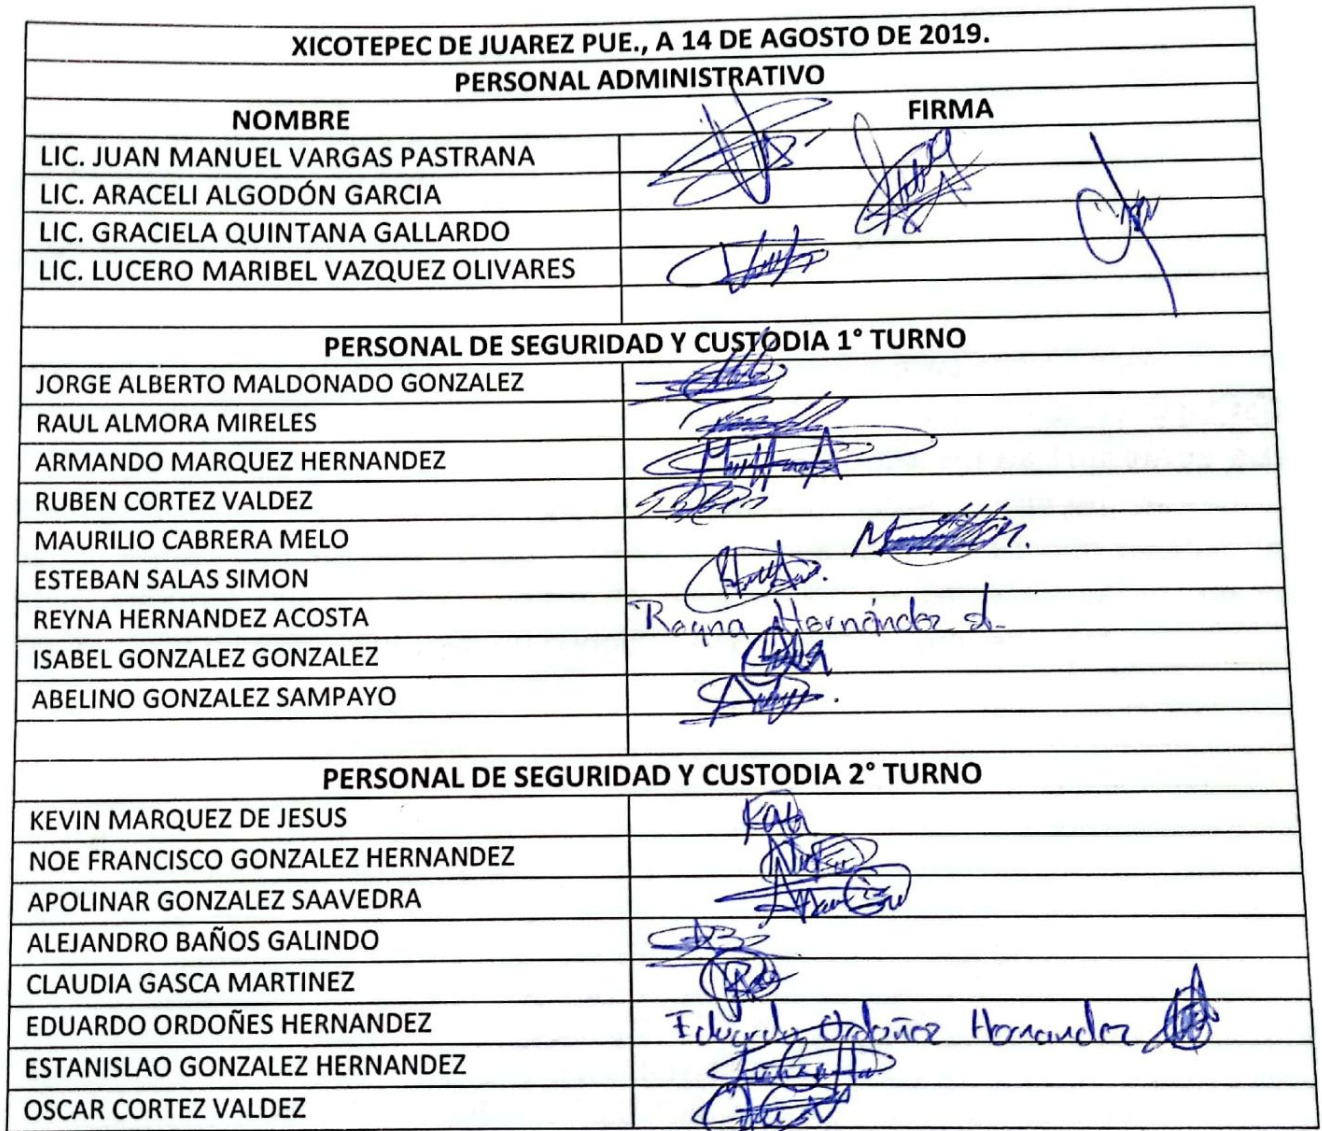 XICOTEPEC DE JUAREZ PUE., A 14 DE AGOSTO DE 2019.
PERSONAL ADMINISTRATIVO
NOMBRE FIRMA
LIC. JUAN MANUEL VARGAS PASTRANA
LIC. ARACELI ALGODÓN GARCIA
LIC. GRACIELA QUINTANA GALLARDO
LIC. LUCERO MARIBEL VAZQUEZ OLIVARES
PERSONAL DE SEGURIDAD Y CUSTODIA 1° TURNO
JORGE ALBERTO MALDONADO GONZALEZ
RAUL ALMORA MIRELES
ARMANDO MARQUEZ HERNANDEZ
RUBEN CORTEZ VALDEZ
MAURILIO CABRERA MELO
ESTEBAN SALAS SIMON
REYNA HERNANDEZ ACOSTA Reyna Hernández A.
ISABEL GONZALEZ GONZALEZ
ABELINO GONZALEZ SAMPAYO
PERSONAL DE SEGURIDAD Y CUSTODIA 2° TURNO
KEVIN MARQUEZ DE JESUS
NOE FRANCISCO GONZALEZ HERNANDEZ
APOLINAR GONZALEZ SAAVEDRA
ALEJANDRO BAÑOS GALINDO
CLAUDIA GASCA MARTINEZ
EDUARDO ORDOÑES HERNANDEZ Eduardo Ordoñez Hernandez
ESTANISLAO GONZALEZ HERNANDEZ
OSCAR CORTEZ VALDEZ